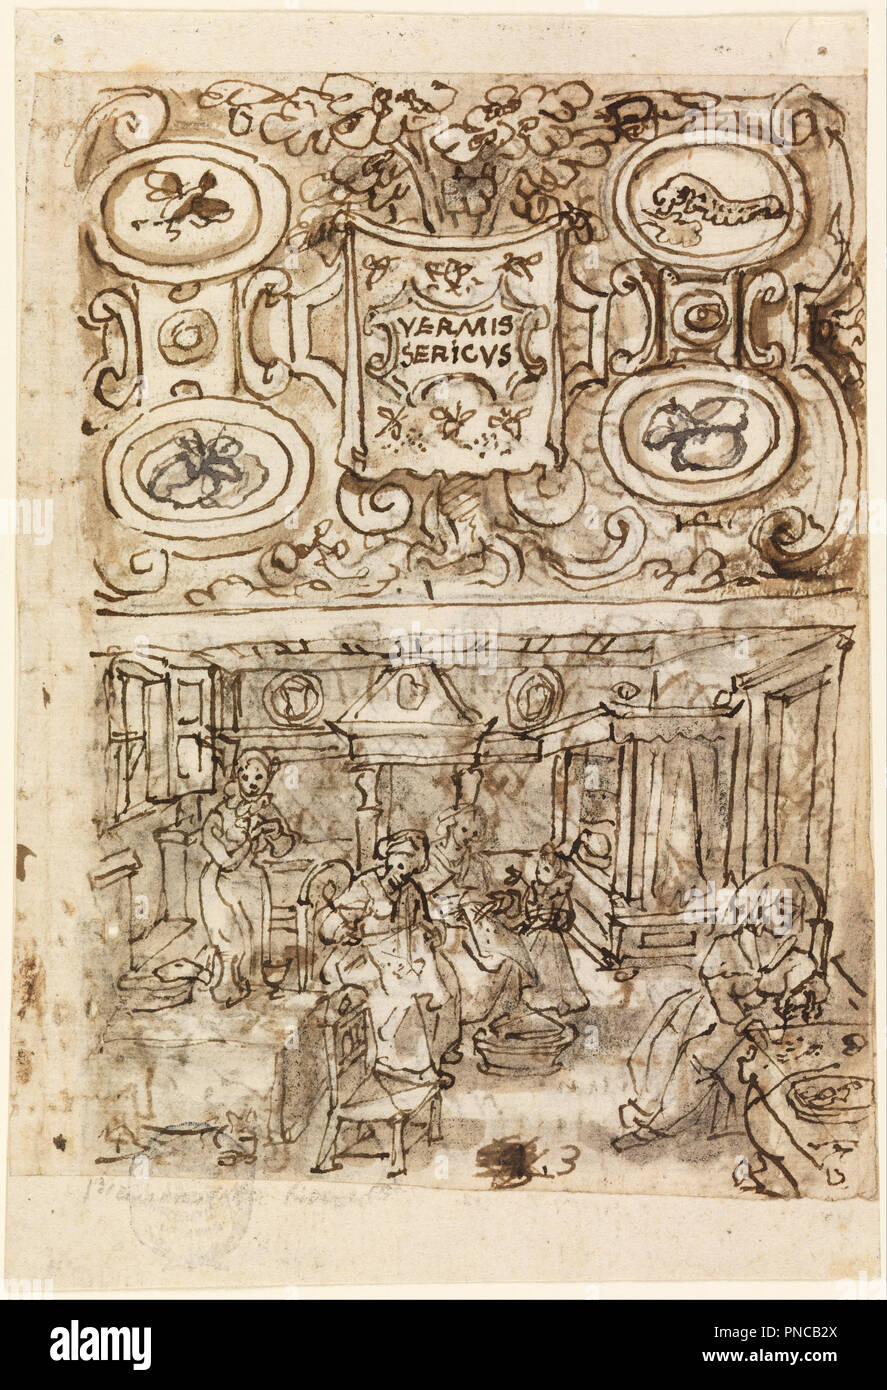 VERMIS
SERICVS
3
alamy
Image ID: PNCB2X
www.alamy.com